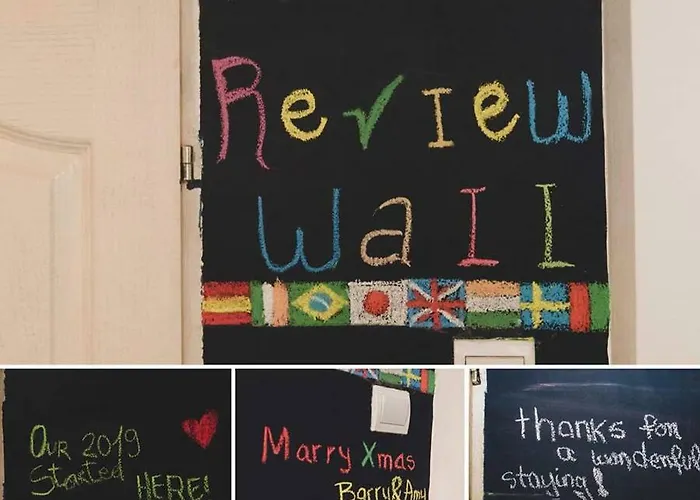 Review
Wall
Our 2019
Started
HERE!
Marry Xmas
Barry&Amy
thanks for
a wonderful
staying!